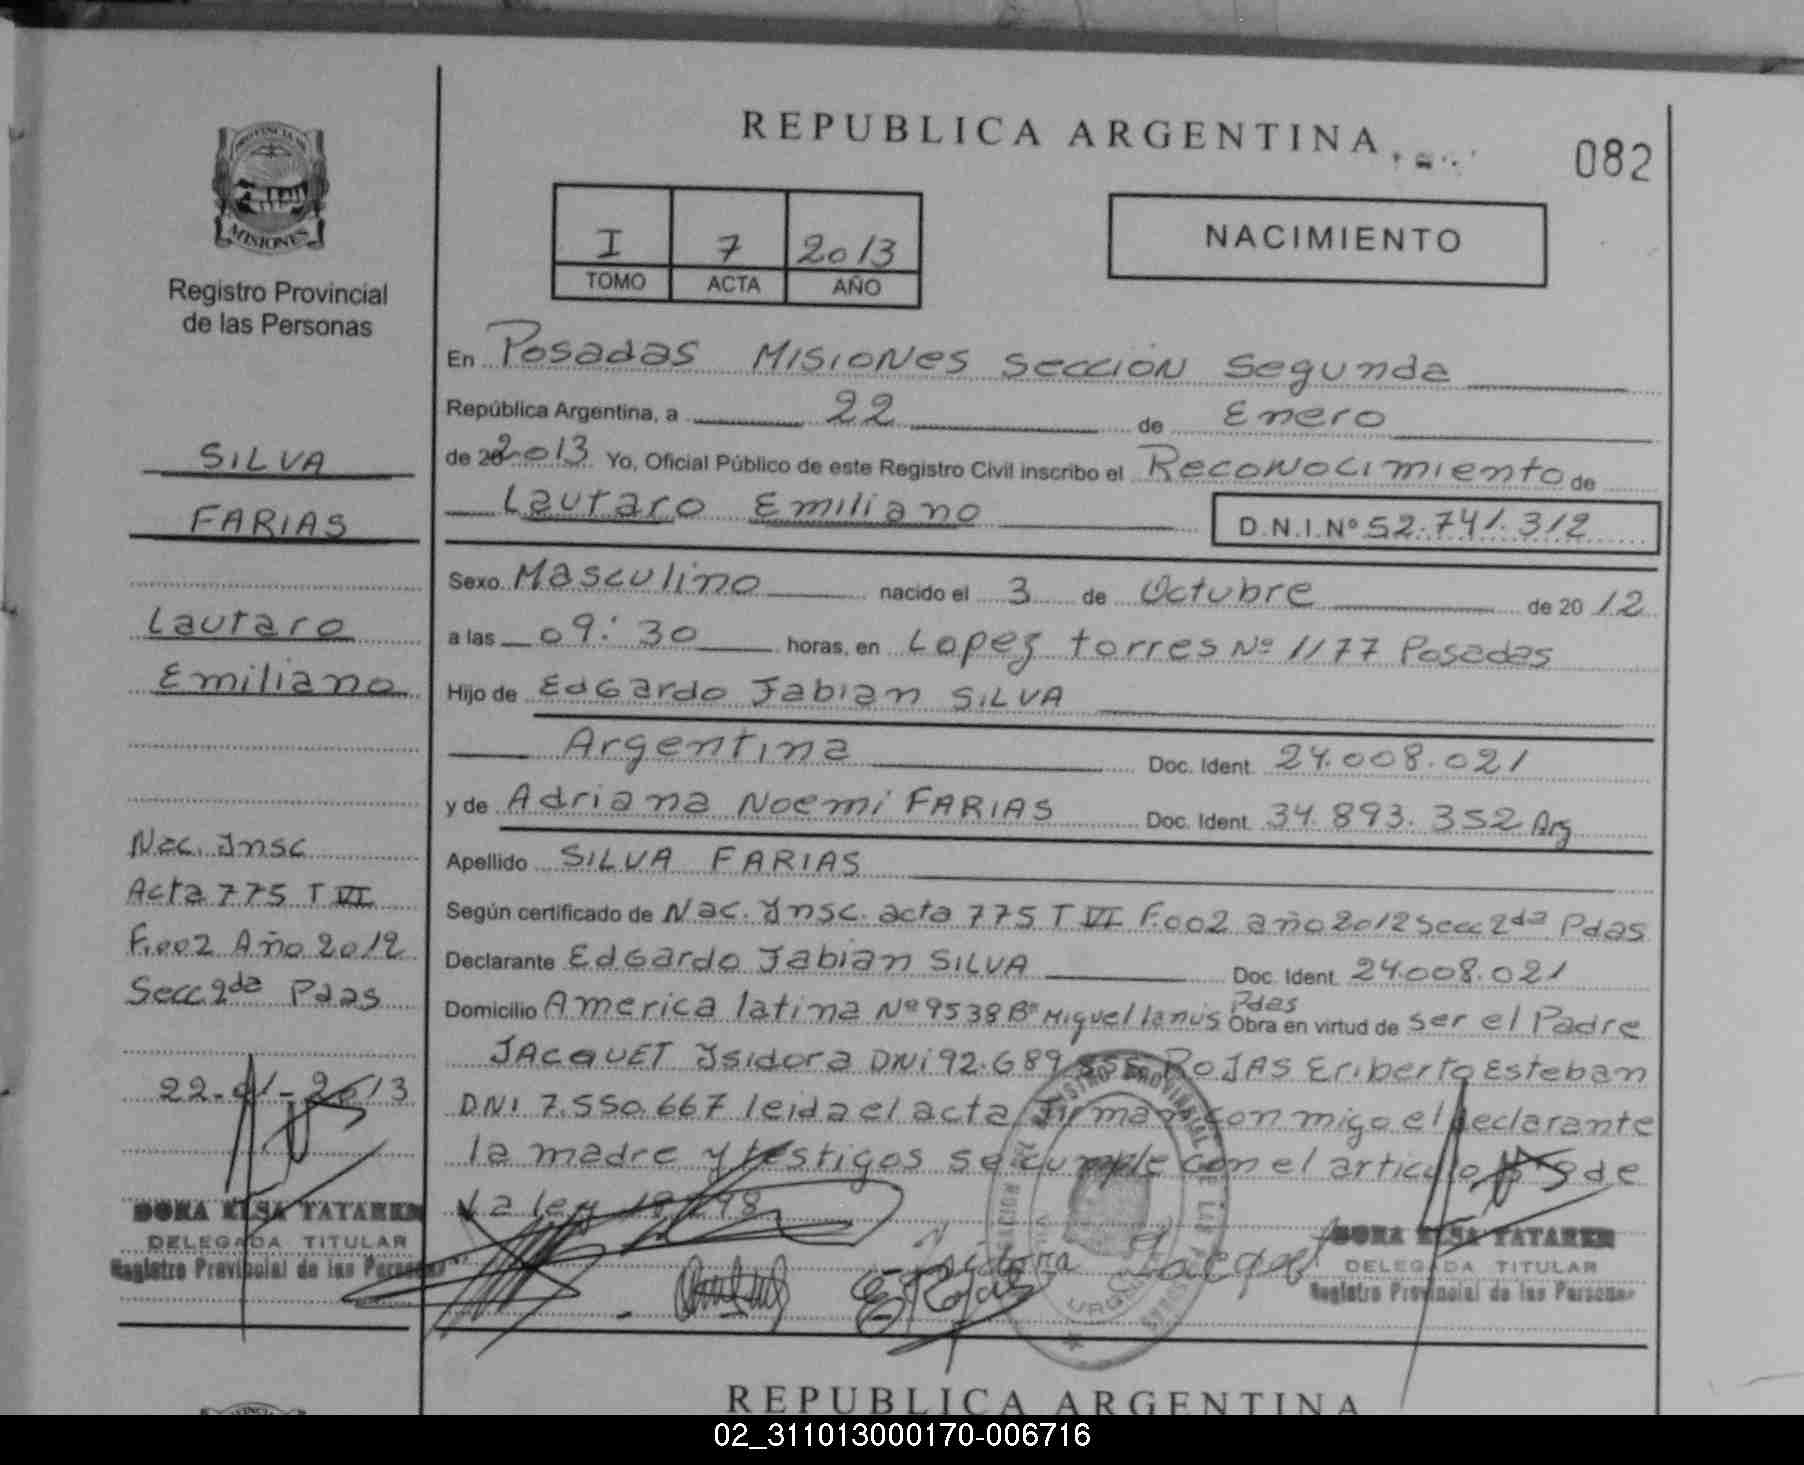 REPUBLICA ARGENTINA
082
PROVINCIA
MISIONES
Registro Provincial
de las Personas
I 7 2013
TOMO ACTA AÑO
NACIMIENTO
En Posadas Misiones Sección Segunda
República Argentina, a 22 de Enero
de 20 2013 Yo, Oficial Público de este Registro Civil inscribo el Reconocimiento de
Lautaro Emiliano D.N.I.Nº 52.741.312
Sexo Masculino nacido el 3 de Octubre de 20 12
a las 09:30 horas, en Lopez torres Nº 1177 Posadas
Hijo de Edgardo Fabian SILVA
Argentina Doc. Ident. 24.008.021
y de Adriana Noemi FARIAS Doc. Ident. 34.893.352 Arg
Apellido SILVA FARIAS
Según certificado de Nac. Insc. acta 775 T VI F.002 año 2012 Secc 2da Pdas
Declarante Edgardo Fabian SILVA Doc. Ident. 24.008.021
Domicilio America latina Nº 9538 Bº Miguel lanus Pdas Obra en virtud de ser el Padre
JACQUET Isidora DNI 92.689. ROJAS Eriberto Esteban
DNI 7.550.667 leida el acta firman con migo el declarante
la madre y testigos se cumple con el articulo de
la ley
SILVA
FARIAS
Lautaro
Emiliano
Nac. Insc
Acta 775 T VI
F.002 Año 2012
Secc 2da Pdas
22-01-2013
DORA ELSA TATAREN
DELEGADA TITULAR
Registro Provincial de las Personas
E Rojas
Isidora Jacquet
DORA ELSA TATAREN
DELEGADA TITULAR
Registro Provincial de las Personas
REPUBLICA ARGENTINA
02_311013000170-006716